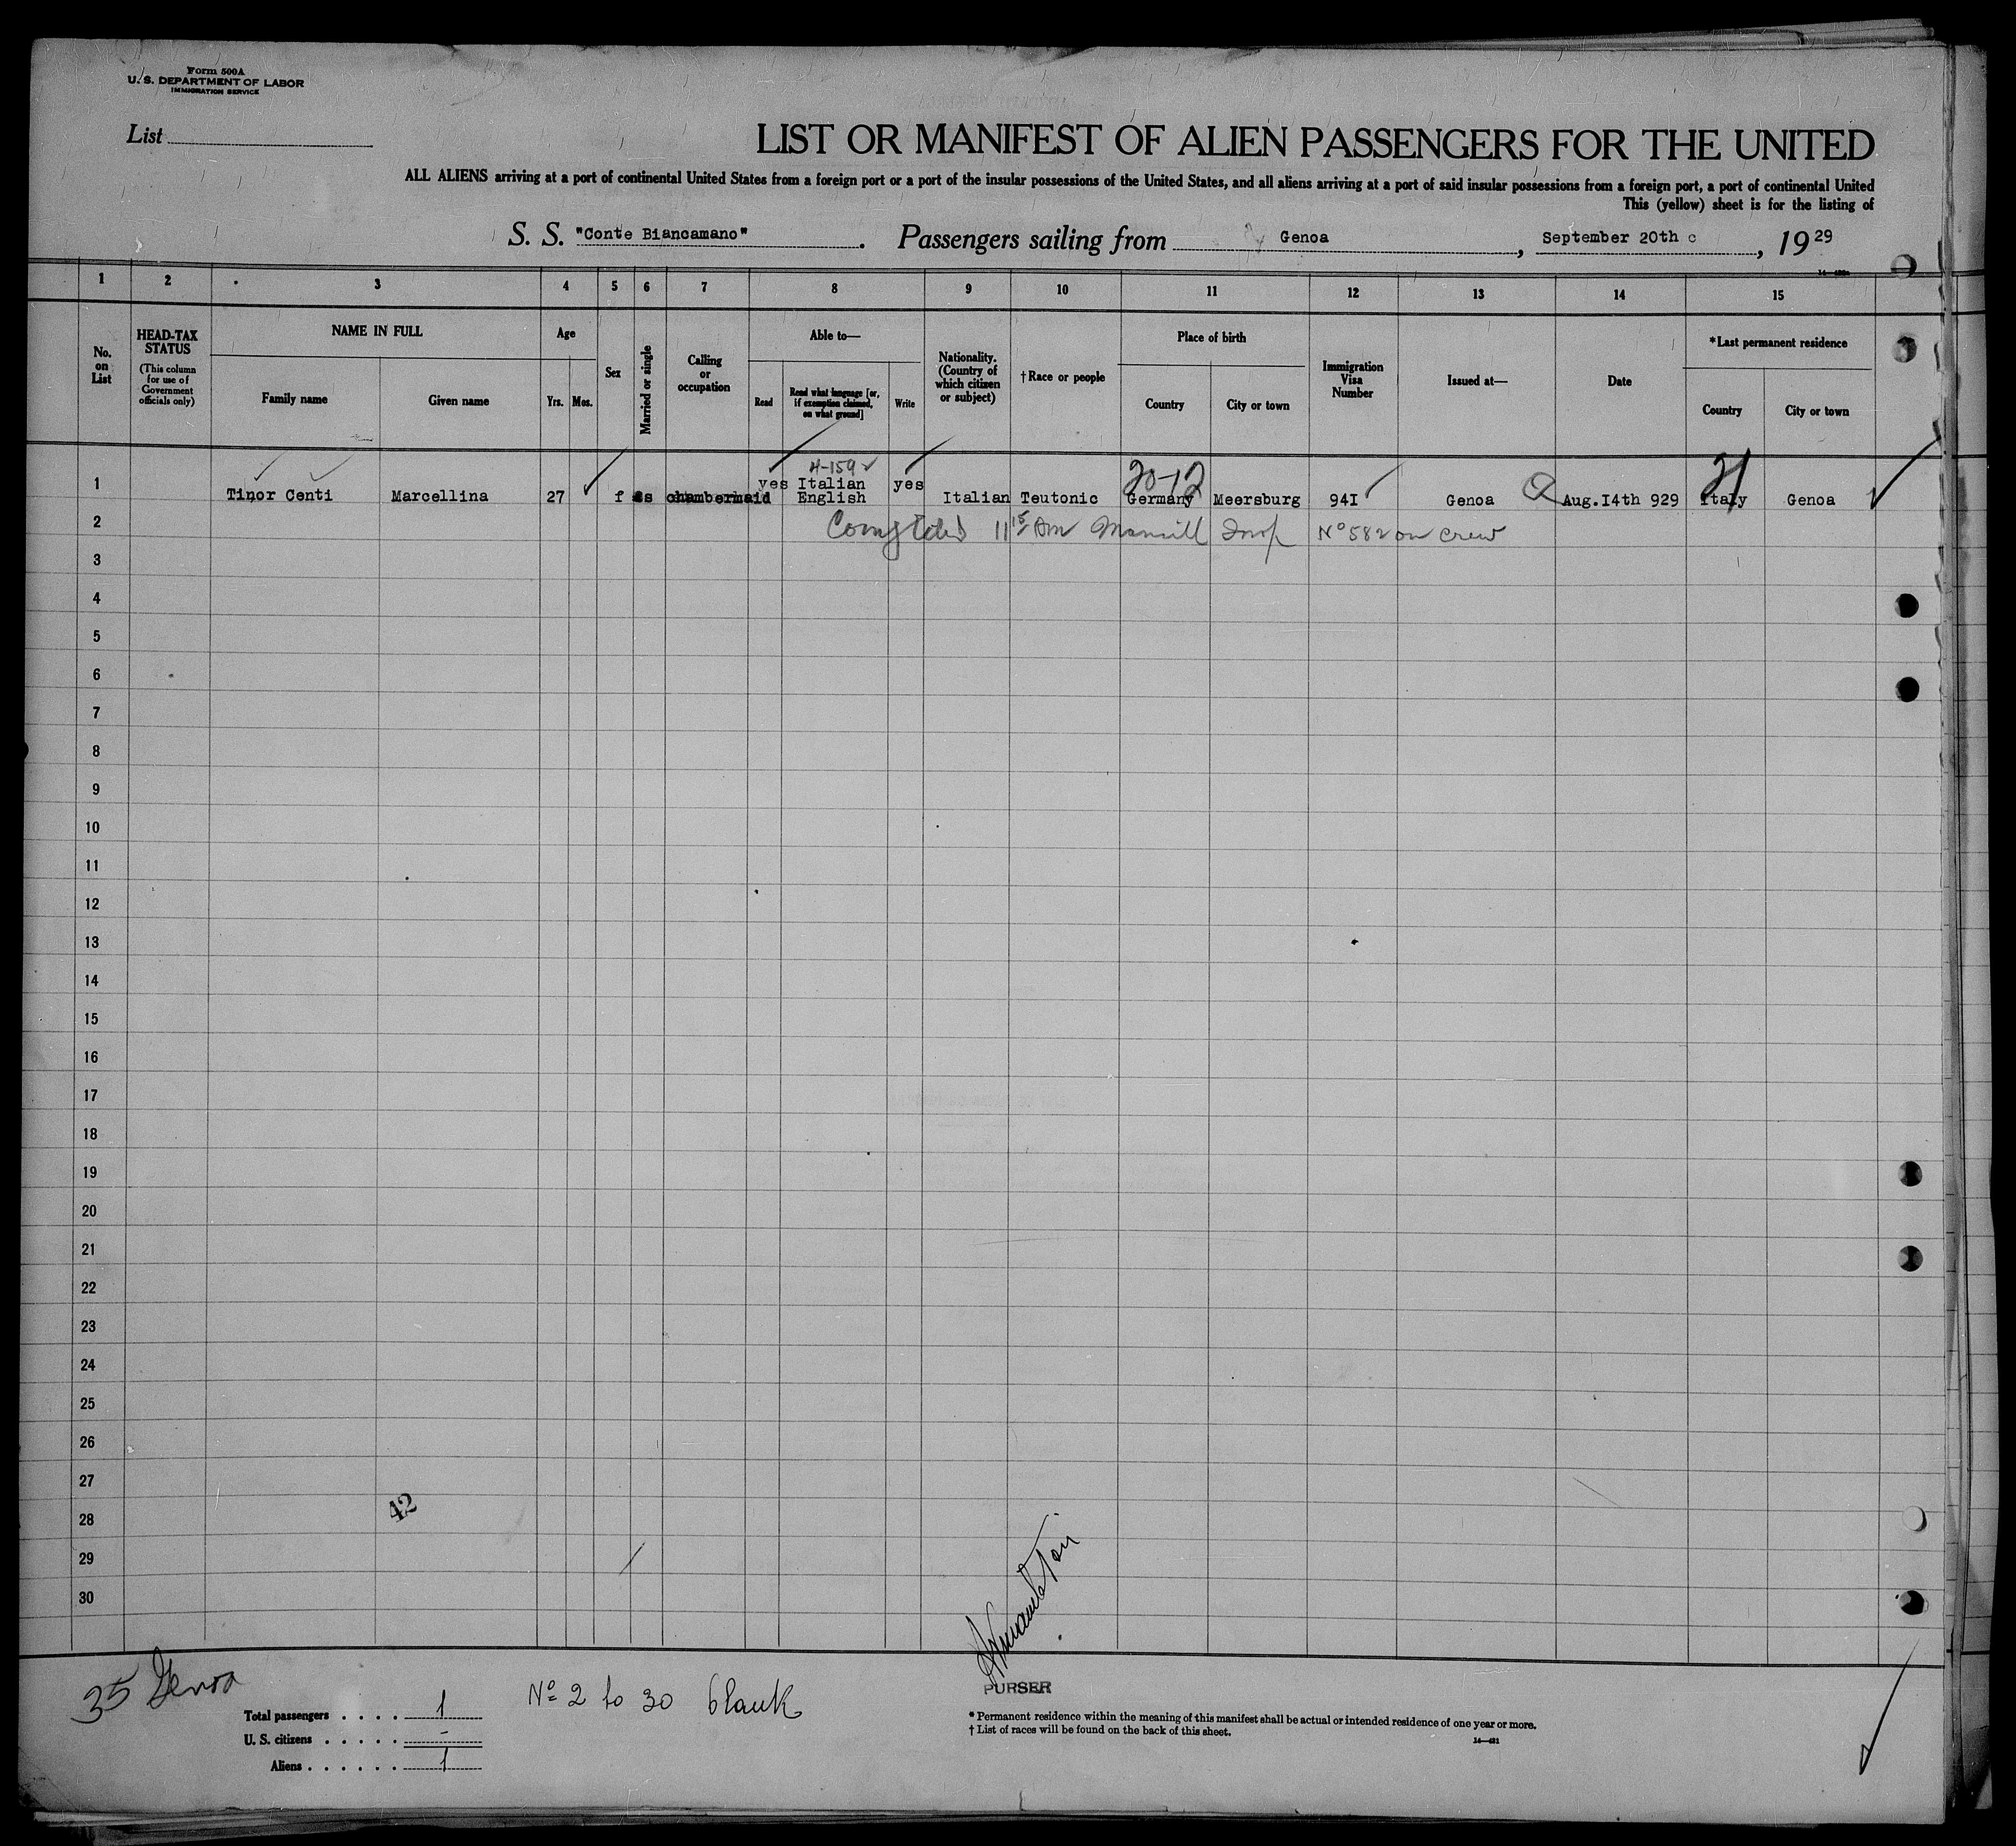 Form 500A
U. S. DEPARTMENT OF LABOR
IMMIGRATION SERVICE
List
LIST OR MANIFEST OF ALIEN PASSENGERS FOR THE UNITED
ALL ALIENS arriving at a port of continental United States from a foreign port or a port of the insular possessions of the United States, and all aliens arriving at a port of said insular possessions from a foreign port, a port of continental United
This (yellow) sheet is for the listing of
S. S. "Conte Biancamano". Passengers sailing from Genoa, September 20th c, 19 29
1 2 3 4 5 6 7 8 9 10 11 12 13 14 15
No. on List
HEAD-TAX STATUS
(This column for use of Government officials only)
NAME IN FULL
Family name
Given name
Age
Yrs. Mos.
Sex
Married or single
Calling or occupation
Able to—
Read
Read what language [or, if exemption claimed, on what ground]
Write
Nationality. (Country of which citizen or subject)
†Race or people
Place of birth
Country
City or town
Immigration Visa Number
Issued at—
Date
*Last permanent residence
Country
City or town
4-159
20-12
21
1 Tinor Centi Marcellina 27 f s chambermaid yes Italian English yes Italian Teutonic Germany Meersburg 94I Genoa Aug.I4th 929 Italy Genoa
2 11 15 AM Insp No 582 on crew
3
4
5
6
7
8
9
10
11
12
13
14
15
16
17
18
19
20
21
22
23
24
25
26
27
42
28
29
30
35 Genoa
No 2 to 30 blank
PURSER
Total passengers . . . . 1
U. S. citizens . . . . . -
Aliens . . . . . . 1
* Permanent residence within the meaning of this manifest shall be actual or intended residence of one year or more.
† List of races will be found on the back of this sheet.